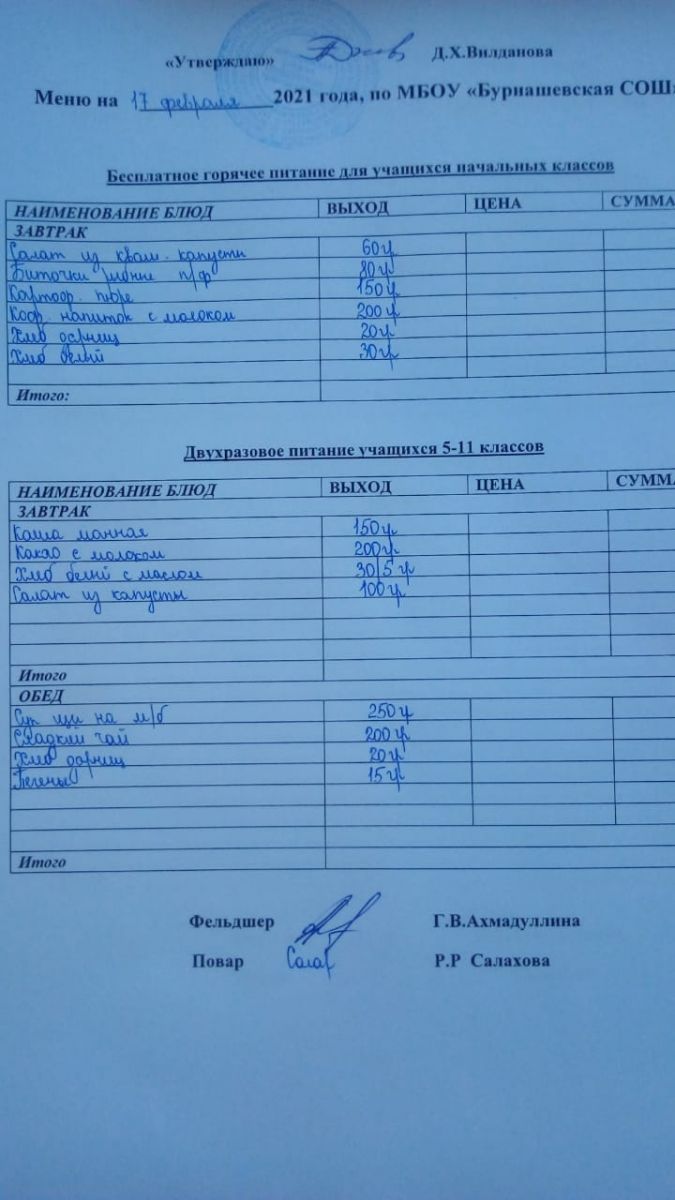 «Утверждаю» Д.Х.Вилданова
Меню на 17 февраля 2021 года, по МБОУ «Бурнашевская СОШ»
Бесплатное горячее питание для учащихся начальных классов
НАИМЕНОВАНИЕ БЛЮД ВЫХОД ЦЕНА СУММА
ЗАВТРАК
Салат из кваш. капусты 60 гр
Биточки п/ф 80 гр
Картоф. пюре 150 гр
Коф. напиток с молоком 200 гр
Хлеб дарниц 20 гр
Хлеб белый 30 гр
Итого:
Двухразовое питание учащихся 5-11 классов
НАИМЕНОВАНИЕ БЛЮД ВЫХОД ЦЕНА СУММА
ЗАВТРАК
Каша манная 150 гр
Какао с молоком 200 гр
Хлеб белый с маслом 30/5 гр
Салат из капусты 100 гр
Итого
ОБЕД
Суп щи на м/б 250 гр
Сладкий чай 200 гр
Хлеб дарниц 20 гр
Печенье 15 гр
Итого
Фельдшер Г.В.Ахмадуллина
Повар Салах Р.Р Салахова